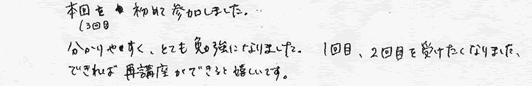 本回を 初めて参加しました。
(3回目
分かりやすく、とても勉強になりました。 1回目、2回目を受けたくなりました、
できれば 再講座ができると嬉しいです。